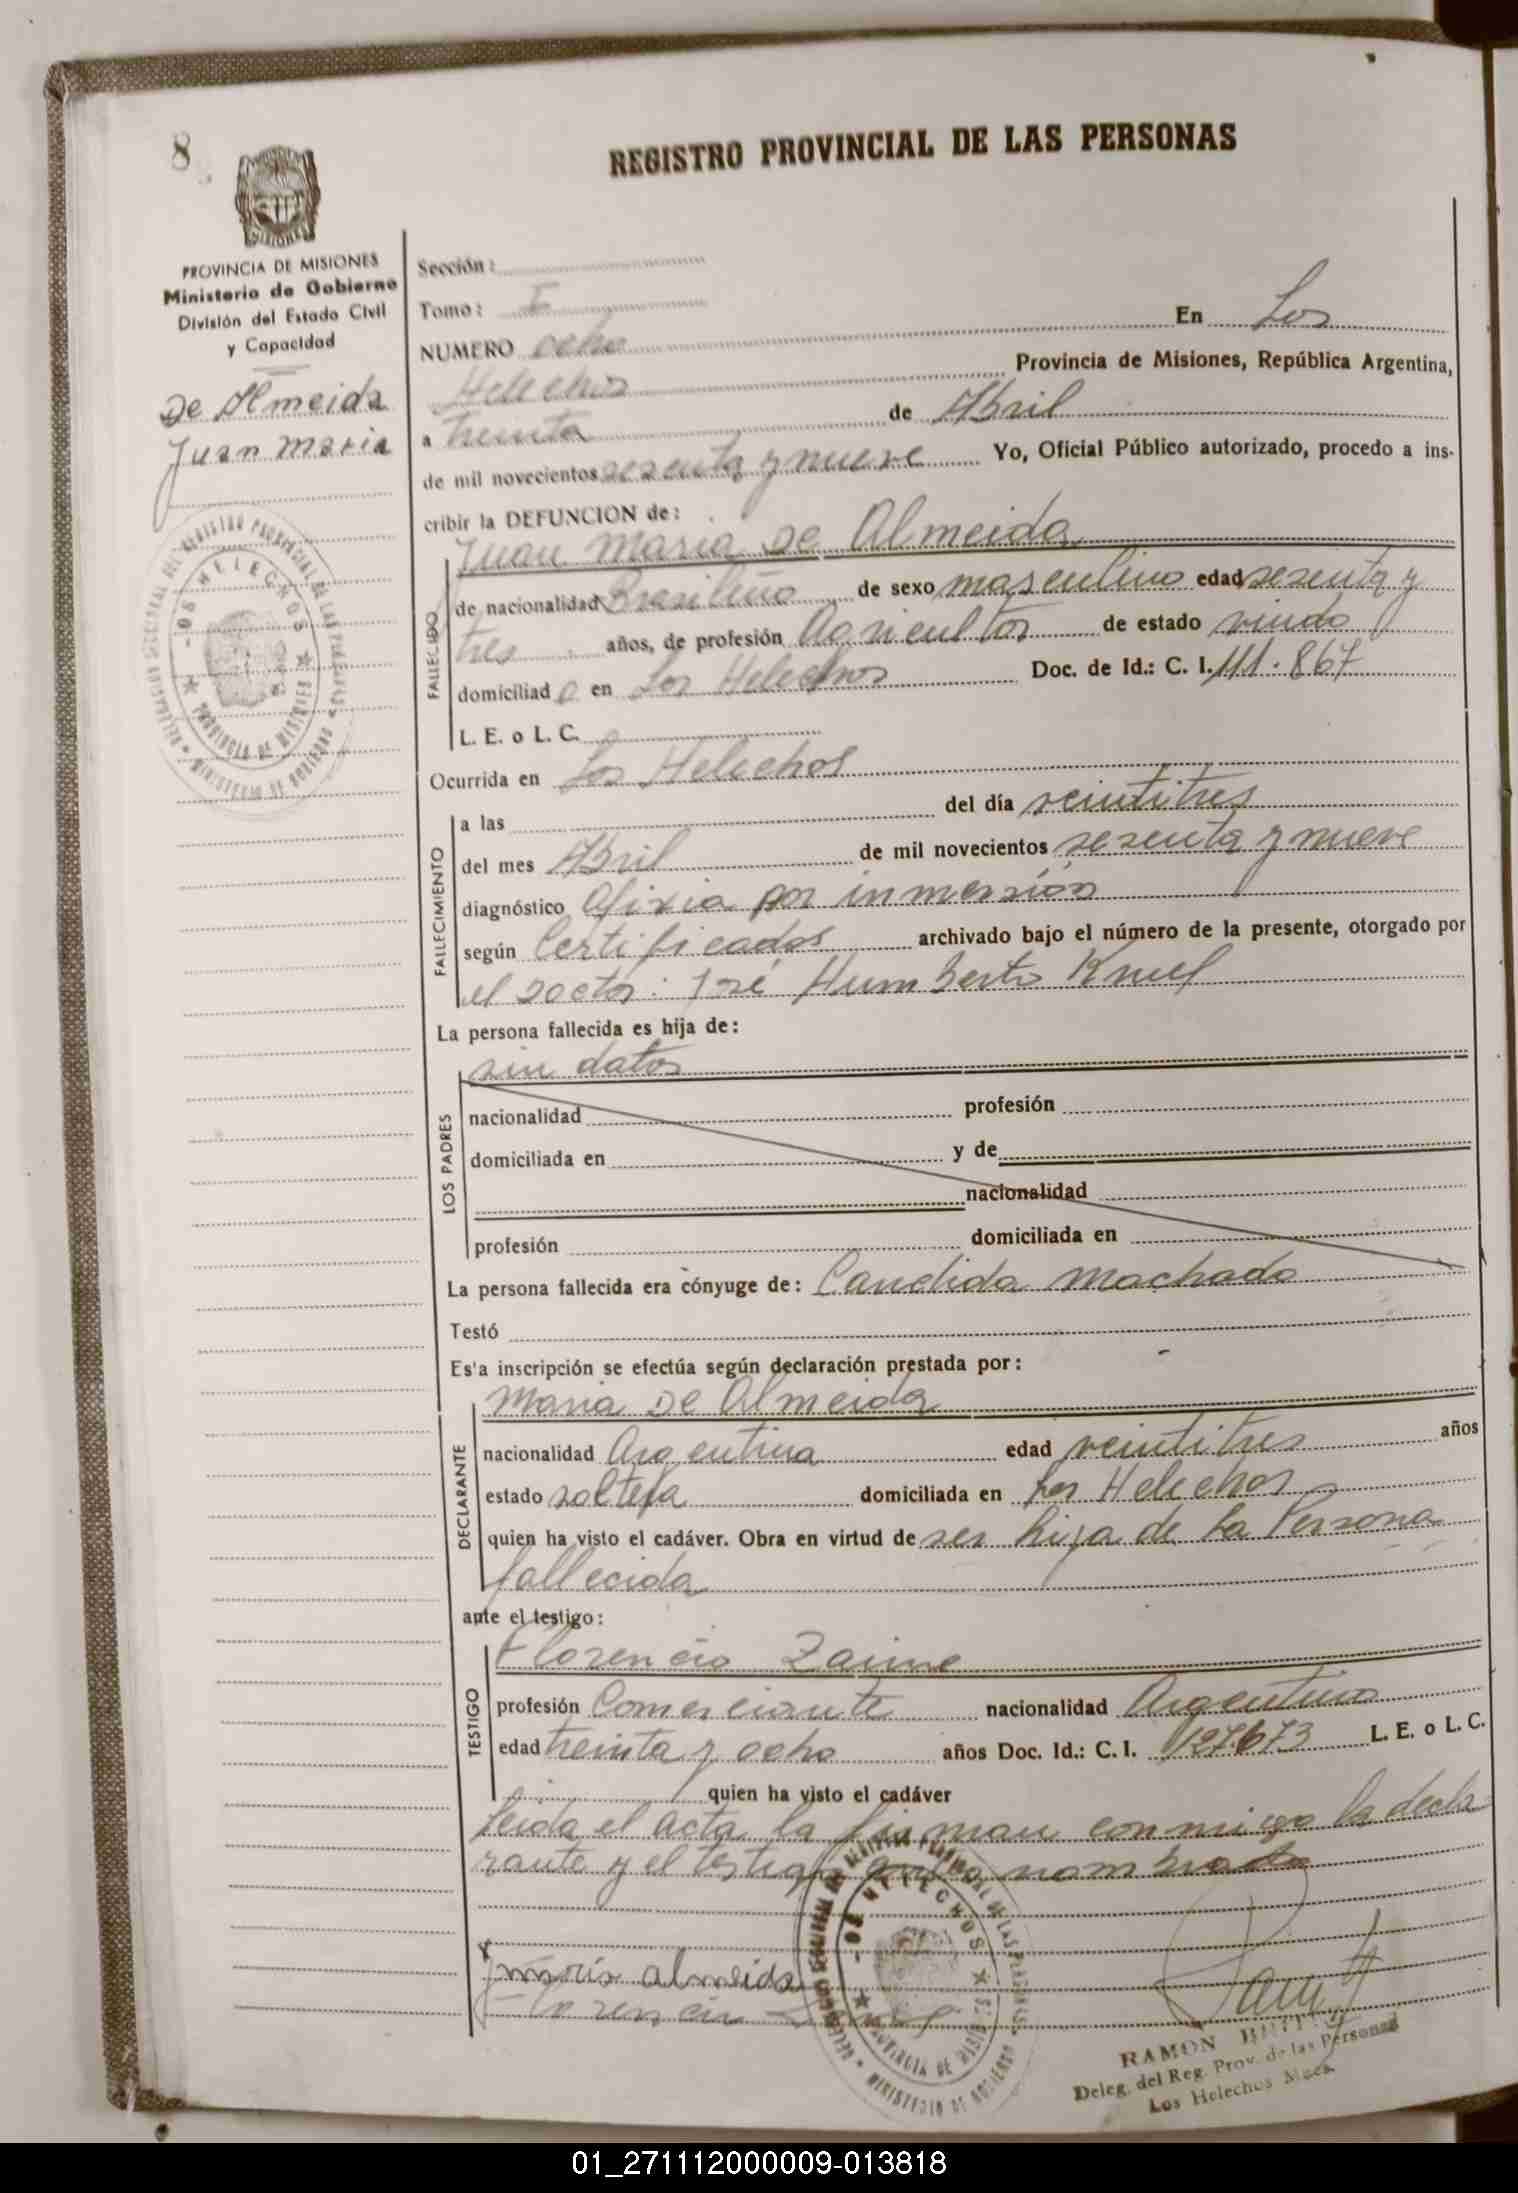 8
REGISTRO PROVINCIAL DE LAS PERSONAS
MISIONES
PROVINCIA DE MISIONES
Ministerio de Gobierno
División del Estado Civil
y Capacidad
De Almeida
Juan Maria
Sección:
Tomo: I
NUMERO ocho En Los
Helechos Provincia de Misiones, República Argentina,
a treinta de Abril
de mil novecientos sesenta y nueve Yo, Oficial Público autorizado, procedo a ins-
cribir la DEFUNCION de:
Juan Maria De Almeida
FALLECIDO
de nacionalidad Brasileño de sexo masculino edad sesenta y
tres años, de profesión Agricultor de estado viudo
domiciliado en Los Helechos Doc. de Id.: C. I. 111.867
L. E. o L. C.
Ocurrida en Los Helechos
FALLECIMIENTO
a las del día veintitres
del mes Abril de mil novecientos sesenta y nueve
diagnóstico Afixia por inmersión
según Certificados archivado bajo el número de la presente, otorgado por
el Doctor: José Humberto
La persona fallecida es hija de:
LOS PADRES
sin datos
nacionalidad profesión
domiciliada en y de
nacionalidad
profesión domiciliada en
La persona fallecida era cónyuge de: Candida Machado
Testó
Es'a inscripción se efectúa según declaración prestada por:
DECLARANTE
Maria De Almeida
nacionalidad Argentina edad veintitres años
estado soltera domiciliada en Los Helechos
quien ha visto el cadáver. Obra en virtud de ser hija de la Persona
fallecida
ante el testigo:
TESTIGO
Florencio Zaime
profesión Comerciante nacionalidad Argentino
edad treinta y ocho años Doc. Id.: C. I. 127673 L. E. o L. C.
quien ha visto el cadáver
Leida el acta la firman conmigo la decla
rante y el testigo nombrado
maria almeida
LOS HELECHOS
PROVINCIA DE MISIONES
MINISTERIO DE GOBIERNO
RAMON
Deleg. del Reg. Prov. de las Personas
Los Helechos Mnes.
01_271112000009-013818